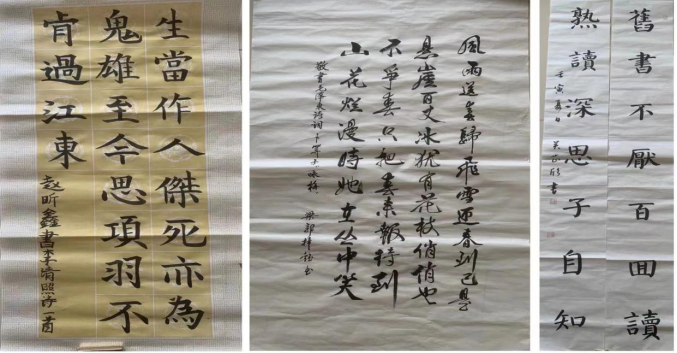 生當作人傑死亦為
鬼雄至今思項羽不
肯過江東
昕鑫書李清照诗一首
風雨送春歸飛雪迎春到已是
悬崖百丈冰犹有花枝俏俏也
不爭春只把春来報待到
山花烂漫時她在丛中笑
敬書毛澤東诗词卜算子咏梅
舊書不厭百回讀
熟讀深思子自知
壬寅夏日